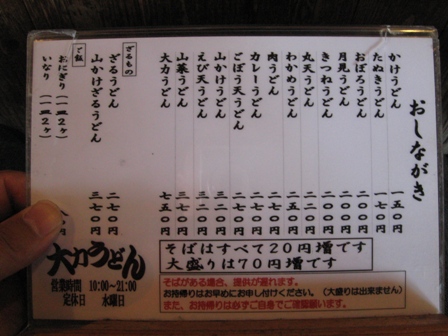 おしながき
かけうどん 一五〇円
たぬきうどん 一七〇円
おぼろうどん 二〇〇円
月見うどん 二〇〇円
きつねうどん 二〇〇円
丸天うどん 二二〇円
わかめうどん 二二〇円
肉うどん 二五〇円
カレーうどん 二七〇円
ごぼう天うどん 二七〇円
山かけうどん 三二〇円
えび天うどん 三二〇円
山菜うどん 三七〇円
大力うどん 七五〇円
ざるもの
ざるうどん 二七〇円
山かけざるうどん 三七〇円
ご飯
おにぎり(一皿2ヶ)
いなり(一皿2ヶ)
大力うどん
営業時間 10:00~21:00
定休日 水曜日
そばはすべて20円増です
大盛りは70円増です
そばがある場合、提供が遅れます。
お持帰りはお早めにお申し付けください。(大盛りは出来ません)
また、お持帰りは必ずご自身でご確認願います。